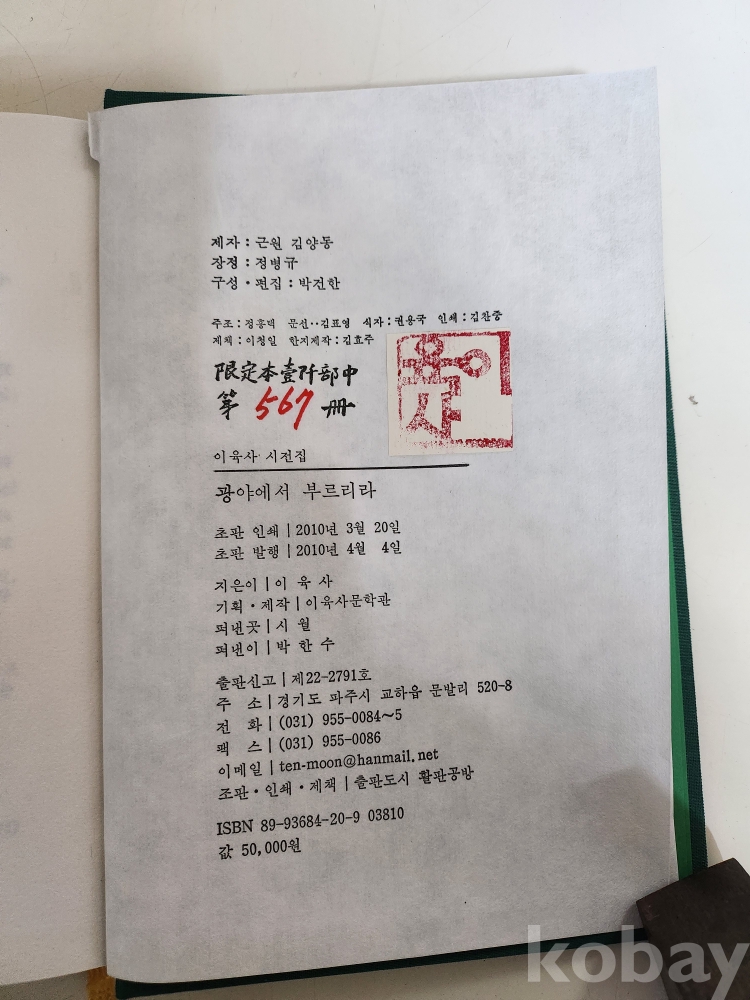 제자 : 근원 김양동
장정 : 정병규
구성·편집 : 박건한
주조 : 정흥택 문선‥김표영 식자 : 권용국 인쇄 : 김찬중
제책 : 이청일 한지제작 : 김효주
限定本壹仟部中
第 567 冊
육사
이육사 시전집
광야에서 부르리라
초판 인쇄 | 2010년 3월 20일
초판 발행 | 2010년 4월 4일
지은이 | 이 육 사
기획·제작 | 이육사문학관
펴낸곳 | 시 월
펴낸이 | 박 한 수
출판신고 | 제22-2791호
주 소 | 경기도 파주시 교하읍 문발리 520-8
전 화 | (031) 955-0084~5
팩 스 | (031) 955-0086
이메일 | ten-moon@hanmail.net
조판·인쇄·제책 | 출판도시 활판공방
ISBN 89-93684-20-9 03810
값 50,000원
kobay